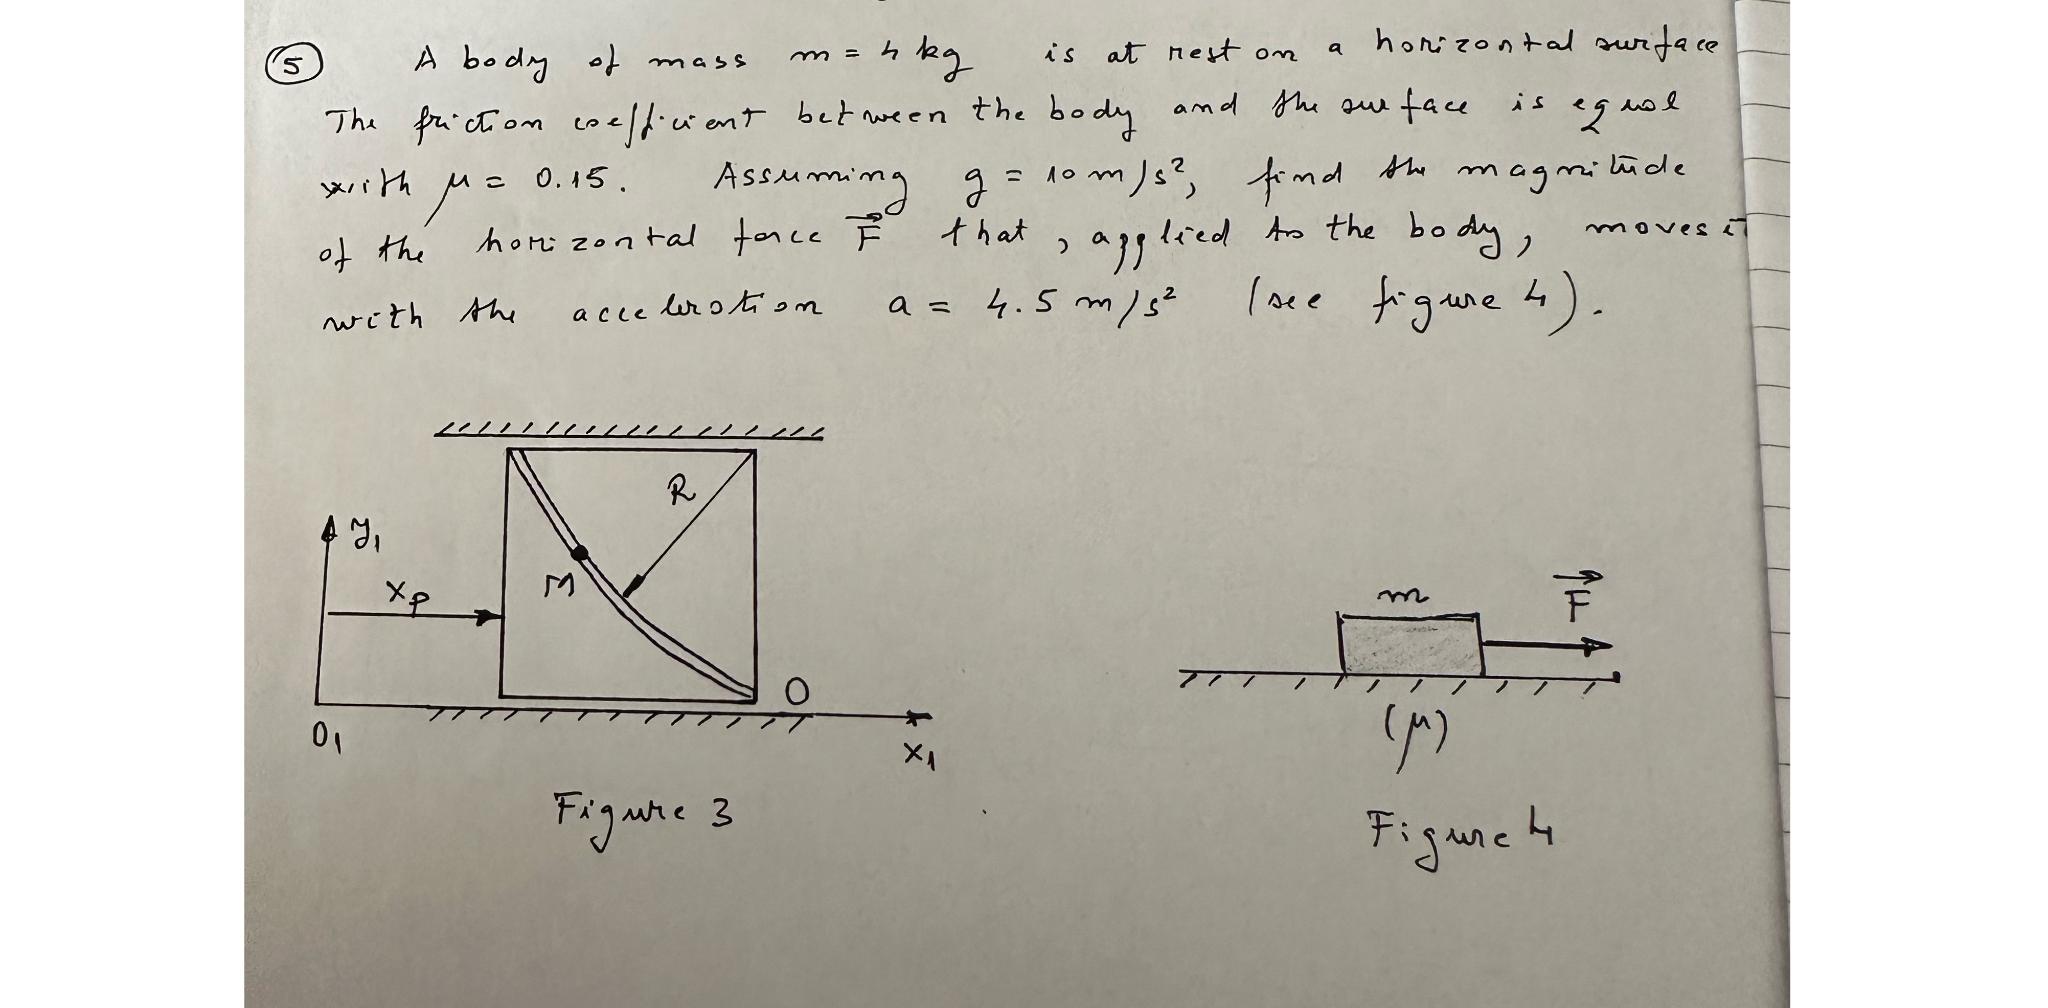 5 A body of mass m = 4 kg is at rest on a horizontal surface
The friction coefficient between the body and the surface is equal
with μ = 0.15. Assuming g = 10 m/s², find the magnitude
of the horizontal force F⃗ that, applied to the body, moves it
with the acceleration a = 4.5 m/s² (see figure 4).
R
y₁
M
xₚ
O
O₁
x₁
Figure 3
m
F⃗
(μ)
Figure 4